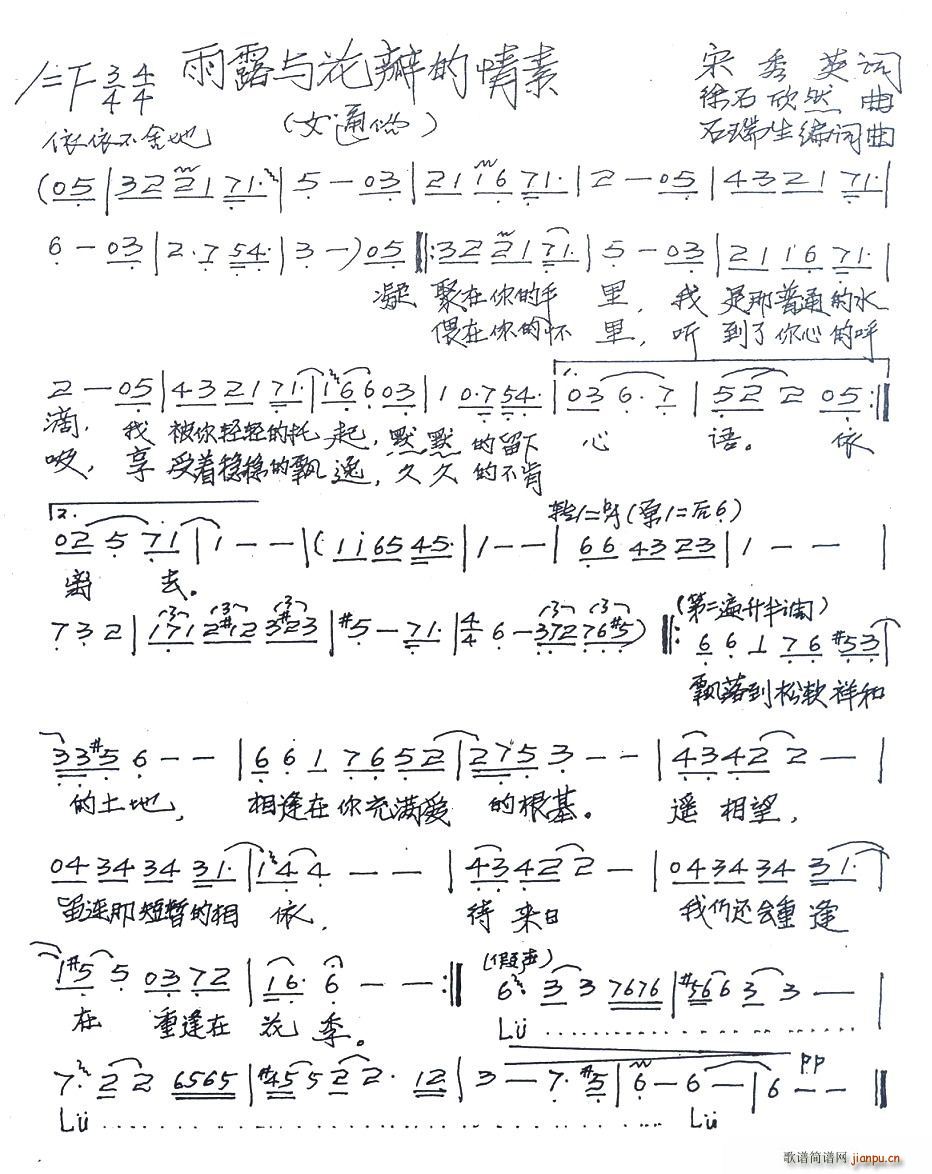 1=F 3/4 4/4 雨露与花瓣的情素
宋秀英词
徐石欣然曲
石瑞生编词曲
依依不舍地
(女通俗)
(05|32 21 71·|5 — 03|21 16 71·|2 — 05|43 21 71·|
6 — 03|2·7 54·|3 —)05‖:32 21 71·|5 — 03|21 16 71·|
凝 聚在你的手 里, 我 是那普通的水
偎在你的怀 里, 听 到了你心的呼
1.
2 — 05|43 21 71·|16 6 03|1 0·7 54·|03 6·7|52 2 05:‖
滴, 我 被你轻轻的托 起, 默默 的留下 心 语。 依
吸, 享 受着稳稳的飘 逸, 久久 的不肯
2. 转1=♭A(第1=后6)
02 5 71|1 — —|(11 65 45·|1 — —|66 43 23|1 — —|
离 去。
(第二遍升半调)
7 3 2|171 2#12 3#23|#5 — 71·|4/4 6 — 372 76#5)‖:6 6 1 76 #53|
飘落到松软祥和
33#5 6 — —|6 6 1 76 52|275 3 — —|43 42 2 —|
的土地, 相逢在你充满爱 的根基。 遥 相望,
04 34· 34 31·|14 4 — —|43 42 2 —|04 34 34 31·|
虽连那短暂的相 依, 待 来日 我们还会重逢
1#5 5 03 72|16· 6 — —:‖(假声)6· 3 3 7676|#56 6 3 3 —|
在 重逢在 花 季。 Lü
pp
7· 2 2 6565|#45 5 2 2· 12|3 — 7· #5|6 — 6 —|6 — —‖
Lü Lü
歌谱简谱网 jianpu.cn